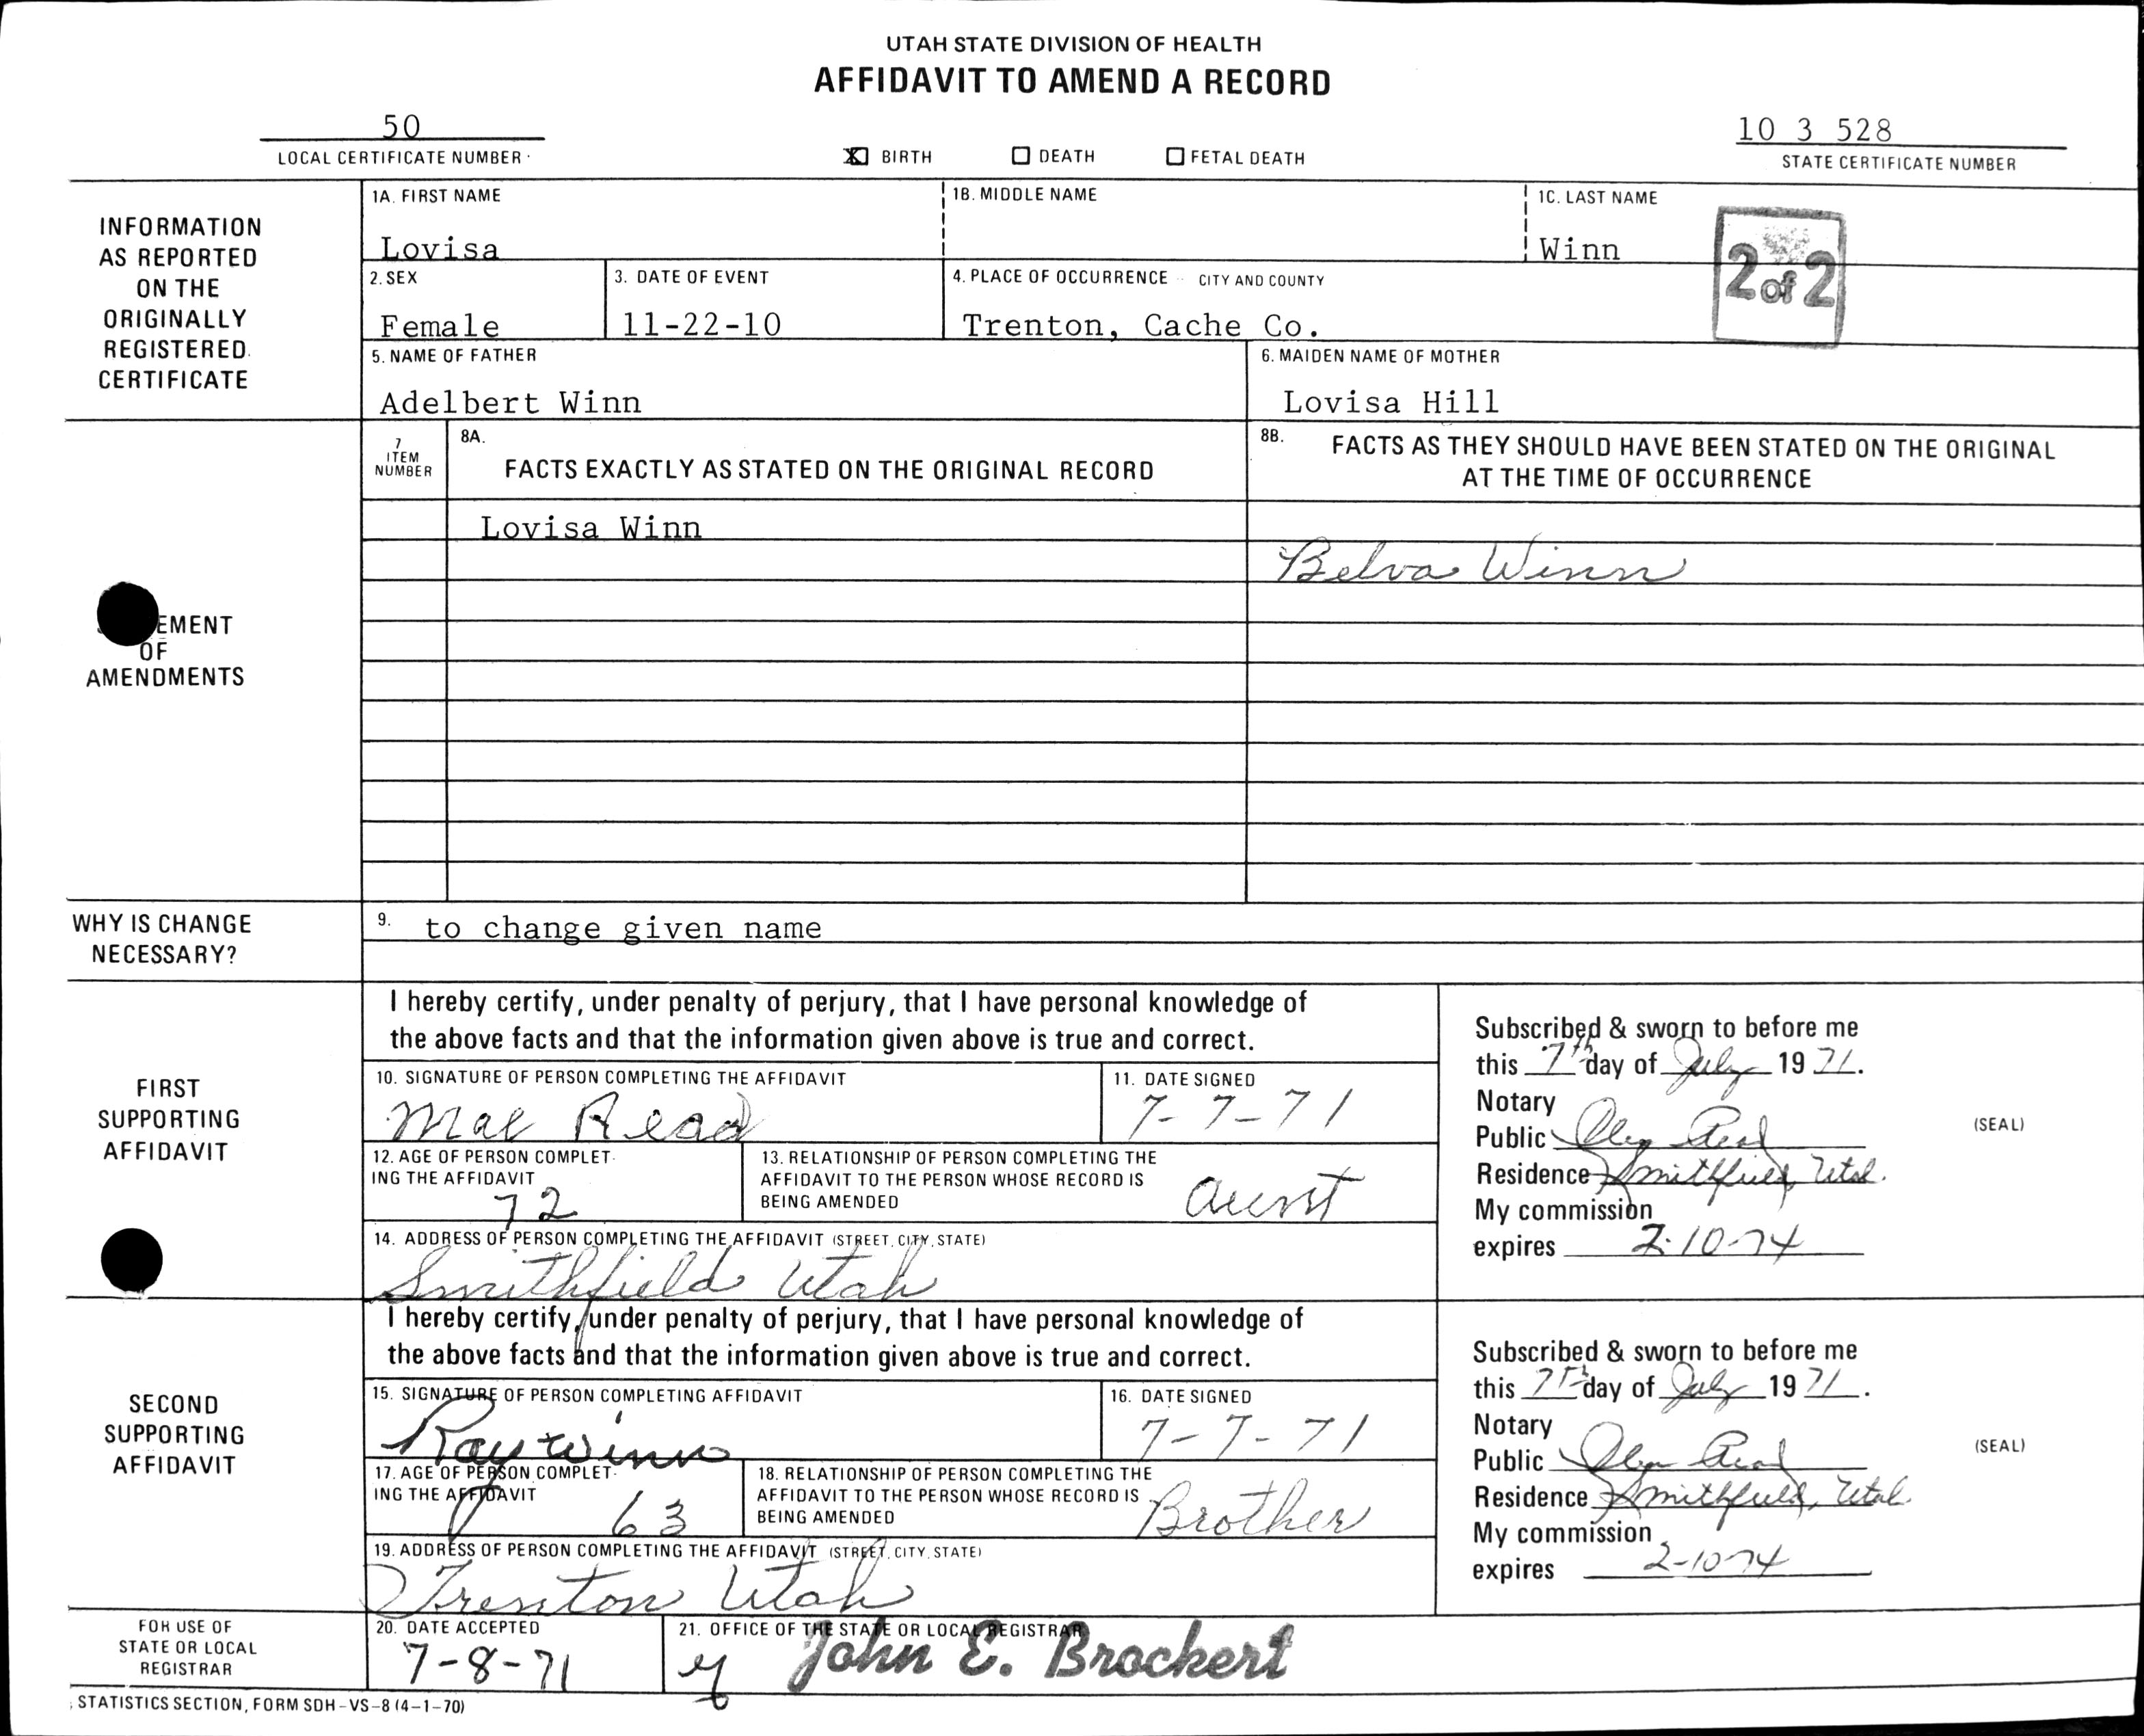 UTAH STATE DIVISION OF HEALTH
AFFIDAVIT TO AMEND A RECORD
50
LOCAL CERTIFICATE NUMBER
X BIRTH DEATH FETAL DEATH
10 3 528
STATE CERTIFICATE NUMBER
INFORMATION
AS REPORTED
ON THE
ORIGINALLY
REGISTERED
CERTIFICATE
1A. FIRST NAME
Lovisa
1B. MIDDLE NAME
1C. LAST NAME
Winn
2 of 2
2. SEX
Female
3. DATE OF EVENT
11-22-10
4. PLACE OF OCCURRENCE CITY AND COUNTY
Trenton, Cache Co.
5. NAME OF FATHER
Adelbert Winn
6. MAIDEN NAME OF MOTHER
Lovisa Hill
EMENT
OF
AMENDMENTS
7
ITEM
NUMBER
8A.
FACTS EXACTLY AS STATED ON THE ORIGINAL RECORD
8B. FACTS AS THEY SHOULD HAVE BEEN STATED ON THE ORIGINAL
AT THE TIME OF OCCURRENCE
Lovisa Winn
Belva Winn
WHY IS CHANGE
NECESSARY?
9. to change given name
FIRST
SUPPORTING
AFFIDAVIT
I hereby certify, under penalty of perjury, that I have personal knowledge of
the above facts and that the information given above is true and correct.
10. SIGNATURE OF PERSON COMPLETING THE AFFIDAVIT
Mae Read
11. DATE SIGNED
7-7-71
12. AGE OF PERSON COMPLET-
ING THE AFFIDAVIT
72
13. RELATIONSHIP OF PERSON COMPLETING THE
AFFIDAVIT TO THE PERSON WHOSE RECORD IS
BEING AMENDED
aunt
14. ADDRESS OF PERSON COMPLETING THE AFFIDAVIT (STREET, CITY, STATE)
Smithfield Utah
Subscribed & sworn to before me
this 7th day of July 1971.
Notary
Public Read
Residence Smithfield, Utah.
My commission
expires 2-10-74
(SEAL)
SECOND
SUPPORTING
AFFIDAVIT
I hereby certify, under penalty of perjury, that I have personal knowledge of
the above facts and that the information given above is true and correct.
15. SIGNATURE OF PERSON COMPLETING AFFIDAVIT
Ray Winn
16. DATE SIGNED
7-7-71
17. AGE OF PERSON COMPLET-
ING THE AFFIDAVIT
63
18. RELATIONSHIP OF PERSON COMPLETING THE
AFFIDAVIT TO THE PERSON WHOSE RECORD IS
BEING AMENDED
Brother
19. ADDRESS OF PERSON COMPLETING THE AFFIDAVIT (STREET, CITY, STATE)
Trenton Utah
Subscribed & sworn to before me
this 7th day of July 1971.
Notary
Public Read
Residence Smithfield, Utah
My commission
expires 2-10-74
(SEAL)
FOR USE OF
STATE OR LOCAL
REGISTRAR
20. DATE ACCEPTED
7-8-71
21. OFFICE OF THE STATE OR LOCAL REGISTRAR
John E. Brockert
STATISTICS SECTION, FORM SDH-VS-8 (4-1-70)